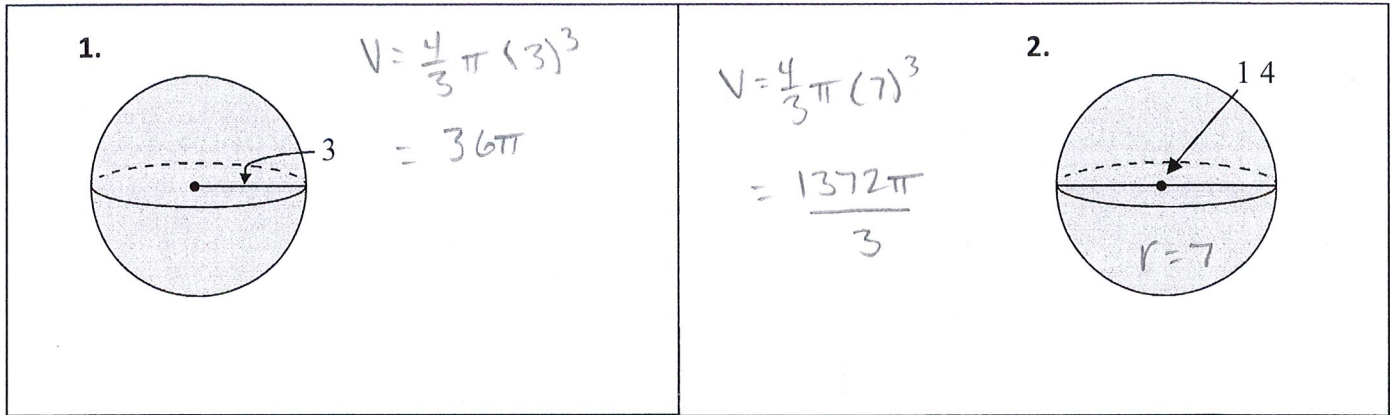 1.
V = 4/3 π (3)³
= 36π
3
2.
V = 4/3 π (7)³
= 1372π/3
14
r = 7